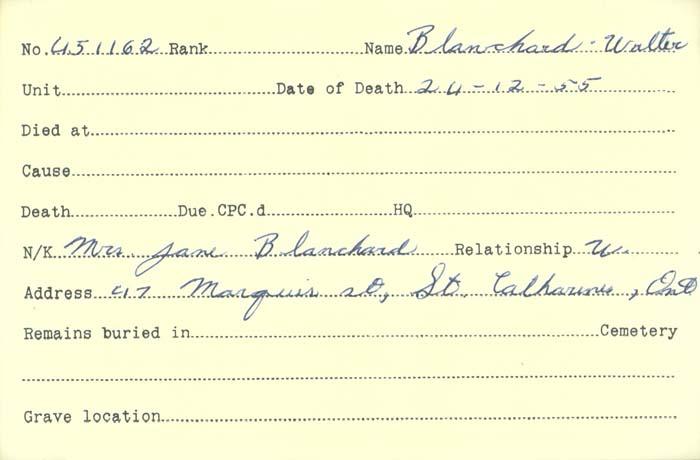 No. 451162 Rank Name Blanchard - Walter
Unit Date of Death 24-12-55
Died at
Cause
Death Due.CPC.d HQ
N/K Mrs Jane Blanchard Relationship W.
Address 47 Marquis St, St. Catharines, Ont
Remains buried in Cemetery
Grave location